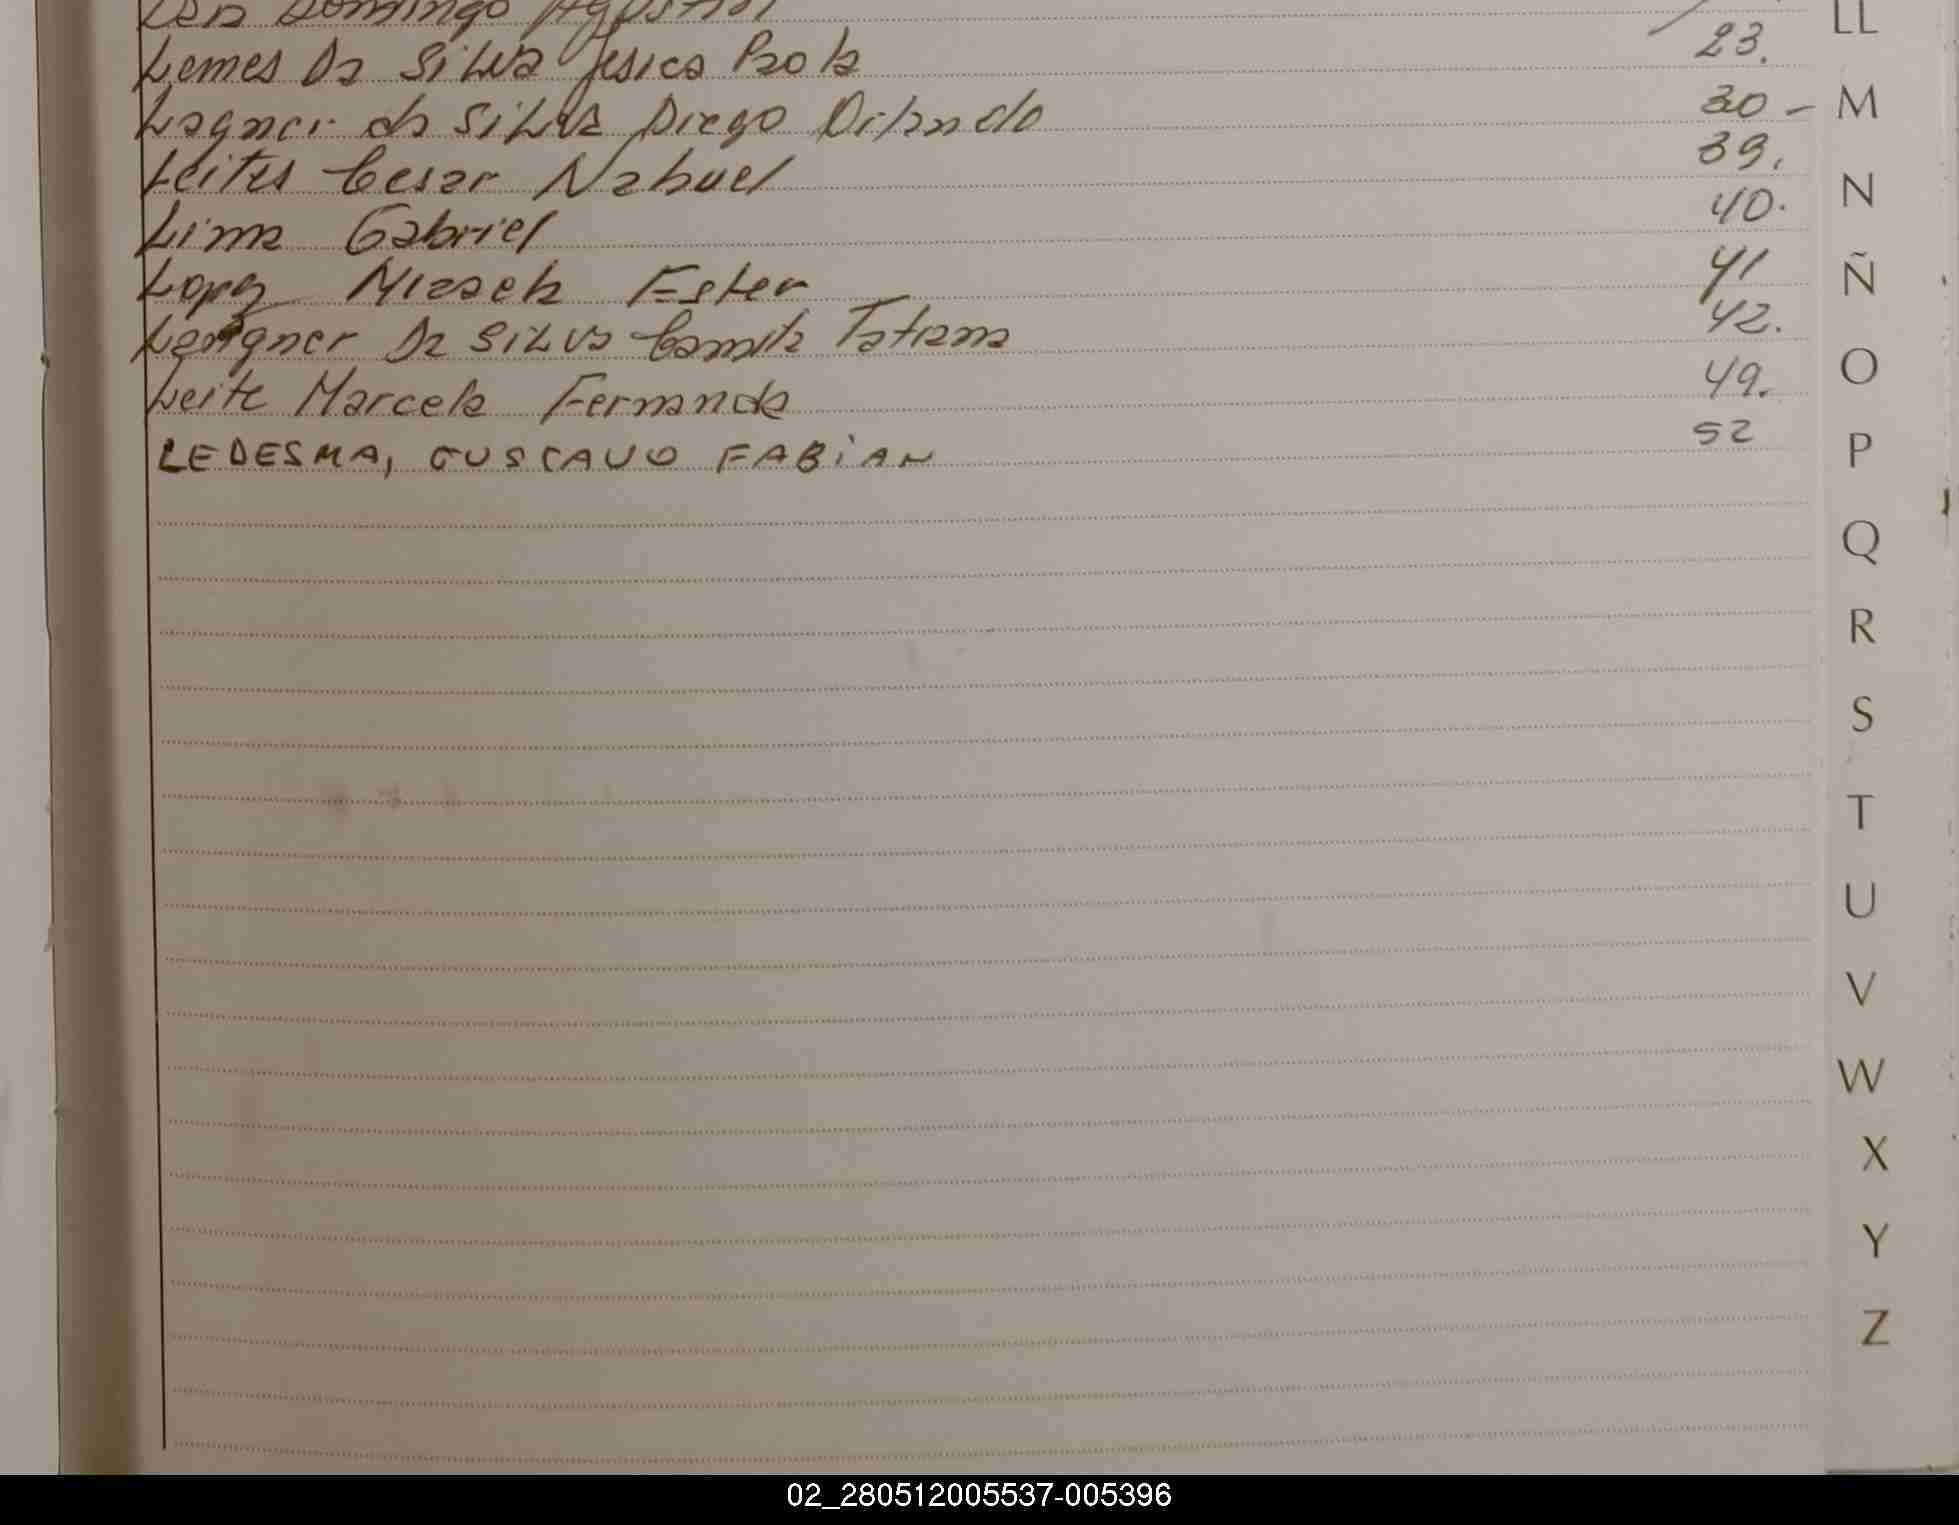 Domingo Agustin
Lemes Da Silva Jesica Paola 23.
Lagner da Silva Diego Orlando 30 -
Leites Cesar Nahuel 39.
Lima Gabriel 40.
Lopez Micaela Ester 41
Leagner Da Silva Camila Tatiana 42.
Leite Marcela Fernanda 49.
LEDESMA, GUSTAVO FABIAN 52
LL
M
N
Ñ
O
P
Q
R
S
T
U
V
W
X
Y
Z
02_280512005537-005396